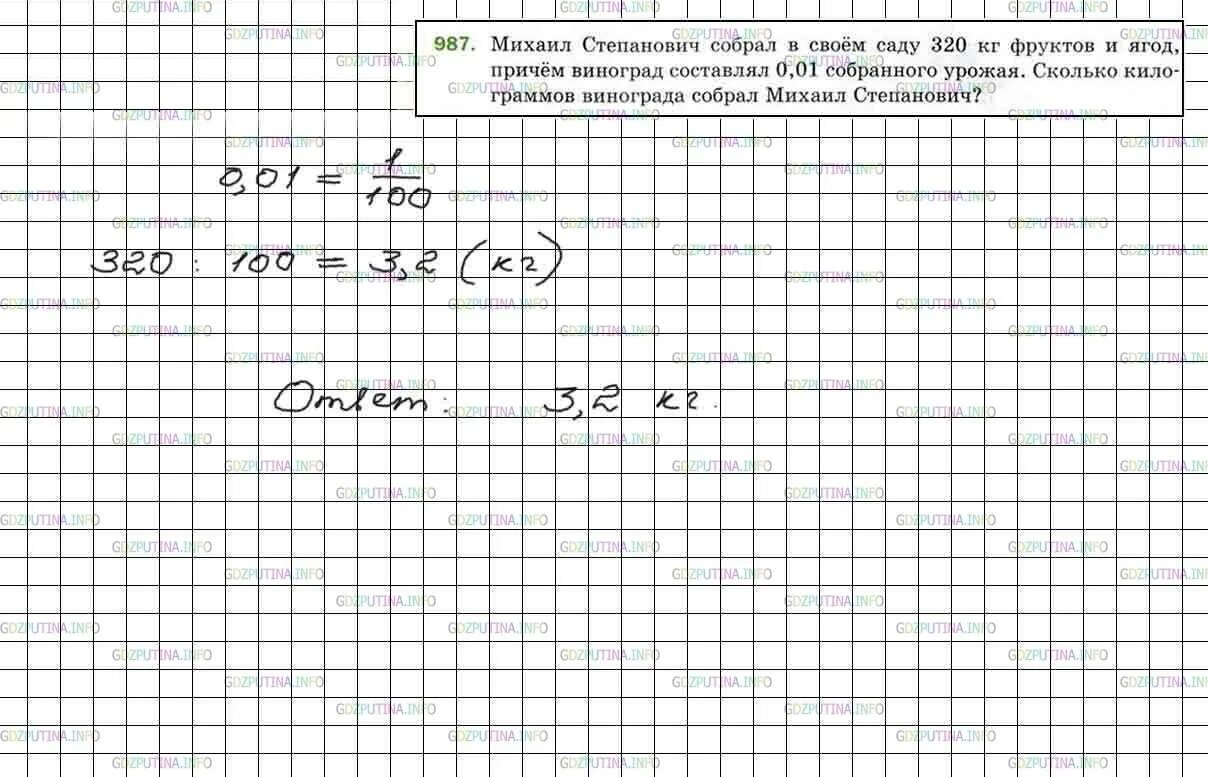 987. Михаил Степанович собрал в своём саду 320 кг фруктов и ягод,
причём виноград составлял 0,01 собранного урожая. Сколько кило-
граммов винограда собрал Михаил Степанович?
0,01 = 1/100
320 : 100 = 3,2 (кг)
Ответ: 3,2 кг.
GDZPUTINA.INFO